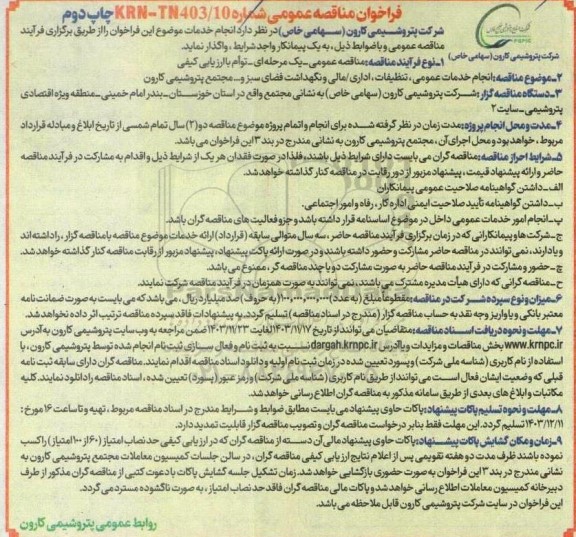 فراخوان مناقصه عمومی شماره KRN-TN403/10 چاپ دوم
شرکت پتروشیمی کارون (سهامی خاص) در نظر دارد انجام خدمات موضوع این فراخوان را از طریق برگزاری فرآیند
مناقصه عمومی و با ضوابط ذیل، به یک پیمانکار واجد شرایط، واگذار نماید.
شرکت پتروشیمی کارون (سهامی خاص)
۱-نوع فرآیند مناقصه: مناقصه عمومی-یک مرحله ای-توأم با ارزیابی کیفی
۲-موضوع مناقصه: انجام خدمات عمومی، تنظیفات، اداری/مالی و نگهداشت فضای سبز و... مجتمع پتروشیمی کارون
۳-دستگاه مناقصه گزار: شرکت پتروشیمی کارون (سهامی خاص) به نشانی مجتمع واقع در استان خوزستان-بندر امام خمینی-منطقه ویژه اقتصادی
پتروشیمی-سایت ۲
۴-مدت و محل انجام پروژه: مدت زمان در نظر گرفته شده برای انجام و اتمام پروژه موضوع مناقصه دو (۲) سال تمام شمسی از تاریخ ابلاغ و مبادله قرارداد
مربوط، خواهد بود و محل اجرای آن، مجتمع پتروشیمی کارون به نشانی مندرج در بند ۳ این فراخوان می باشد.
۵-شرایط احراز مناقصه: مناقصه گران می بایست دارای شرایط ذیل باشند، فلذا در صورت فقدان هر یک از شرایط ذیل و اقدام به مشارکت در فرآیند مناقصه
حاضر و ارائه پیشنهاد قیمت، پیشنهاد مزبور از دور رقابت در مناقصه کنار گذاشته خواهد شد.
الف-داشتن گواهینامه صلاحیت عمومی پیمانکاران
ب-داشتن گواهینامه تأیید صلاحیت ایمنی اداره کار، رفاه و امور اجتماعی.
پ-انجام امور خدمات عمومی داخل در موضوع اساسنامه قرار داشته باشد و جزو فعالیت های مناقصه گران باشد.
ج-شرکت ها و پیمانکارانی که در زمان برگزاری فرآیند مناقصه حاضر، سه سال متوالی سابقه (قرارداد) ارائه خدمات موضوع مناقصه با مناقصه گزار، را داشته اند
و یا دارند، نمی توانند در مناقصه حاضر مشارکت و حضور داشته باشند و در صورت ارائه پاکات پیشنهاد، پیشنهاد مزبور از رقابت مناقصه کنار گذاشته خواهد شد.
چ-حضور و مشارکت در فرآیند مناقصه حاضر به صورت مشارکت دو یا چند مناقصه گر، ممنوع می باشد.
ح-مناقصه گرانی که دارای هیأت مدیره مشترک می باشند، نمی توانند به صورت همزمان در فرآیند مناقصه شرکت نمایند.
۶-میزان و نوع سپرده شرکت در مناقصه: مقطوعاً مبلغ (به عدد) ۱۰۰,۰۰۰,۰۰۰,۰۰۰ (به حروف) صد میلیارد ریال، می باشد که می بایست به صورت ضمانت نامه
معتبر بانکی و یا واریز وجه نقد به حساب مناقصه گزار (مندرج در اسناد مناقصه) تسلیم گردد. به پیشنهادات فاقد سپرده مناقصه ترتیب اثر داده نخواهد شد.
۷-مهلت و نحوه دریافت اسناد مناقصه: متقاضیان می توانند از تاریخ ۱۴۰۳/۱۱/۱۷ لغایت ۱۴۰۳/۱۱/۲۳ ضمن مراجعه به وب سایت پتروشیمی کارون به آدرس
www.krnpc.ir بخش مناقصات و مزایدات و یا آدرس dargah.krnpc.ir نسبت به ثبت نام و فعال سازی ثبت نام انجام شده توسط پتروشیمی کارون، با
استفاده از نام کاربری (شناسه ملی شرکت) و پسورد تعیین شده در زمان ثبت نام اولیه و دانلود اسناد مناقصه اقدام نمایند. مناقصه گران دارای سابقه ثبت نامه
قبلی که وضعیت ایشان فعال است می توانند از طریق نام کاربری (شناسه ملی شرکت) و رمز عبور (پسورد) تعیین شده، اسناد مناقصه را دانلود نمایند. کلیه
مکاتبات و ابلاغ های بعدی از طریق سامانه مذکور به مناقصه گران اطلاع رسانی خواهد شد.
۸-مهلت و نحوه تسلیم پاکات پیشنهاد: پاکات حاوی پیشنهاد می بایست مطابق ضوابط و شرایط مندرج در اسناد مناقصه مربوط، تهیه و تا ساعت ۱۶ مورخ:
۱۴۰۳/۱۲/۱۱ تسلیم گردد. این مهلت فقط بنابر درخواست مناقصه گران و تصویب مناقصه گزار قابلیت تمدید دارد.
۹-زمان و مکان گشایش پاکات پیشنهاد: پاکات حاوی پیشنهاد مالی آن دسته از مناقصه گران که در ارزیابی کیفی حد نصاب امتیاز (۶۰ از ۱۰۰ امتیاز) را کسب
نموده باشند ظرف مدت دو هفته تقویمی پس از اعلام نتایج ارزیابی کیفی مناقصه گران، در سالن جلسات کمیسیون معاملات مجتمع پتروشیمی کارون به
نشانی مندرج در بند ۳ این فراخوان به صورت حضوری بازگشایی خواهد شد. زمان تشکیل جلسه گشایش پاکات با دعوت کتبی از مناقصه گران مذکور از طرف
دبیرخانه کمیسیون معاملات اطلاع رسانی خواهد شد و پاکات مالی مناقصه گران فاقد حد نصاب امتیاز، به صورت ناگشوده مسترد می گردد.
این فراخوان در سایت شرکت پتروشیمی کارون قابل ملاحظه می باشد.
روابط عمومی پتروشیمی کارون